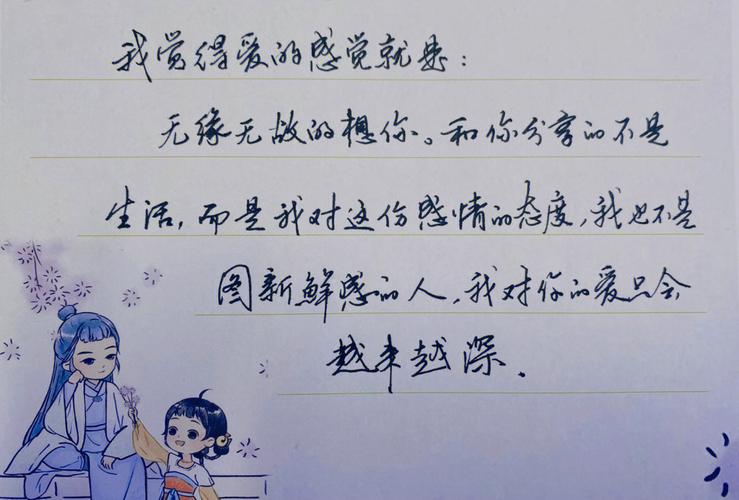 我觉得爱的感觉就是：
无缘无故的想你。和你分享的不是
生活，而是我对这份感情的态度，我也不是
图新鲜感的人，我对你的爱只会
越来越深．